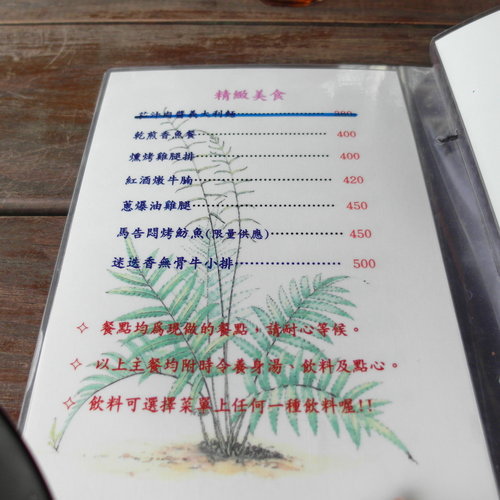 精緻美食
肉醬義大利麵
乾煎香魚餐 400
燻烤雞腿排 400
紅酒燉牛腩 420
蔥爆油雞腿 450
馬告悶烤魴魚(限量供應) 450
迷迭香無骨牛小排 500
✧ 餐點均爲現做的餐點，請耐心等候。
✧ 以上主餐均附時令養身湯、飲料及點心。
✧ 飲料可選擇菜單上任何一種飲料喔!!